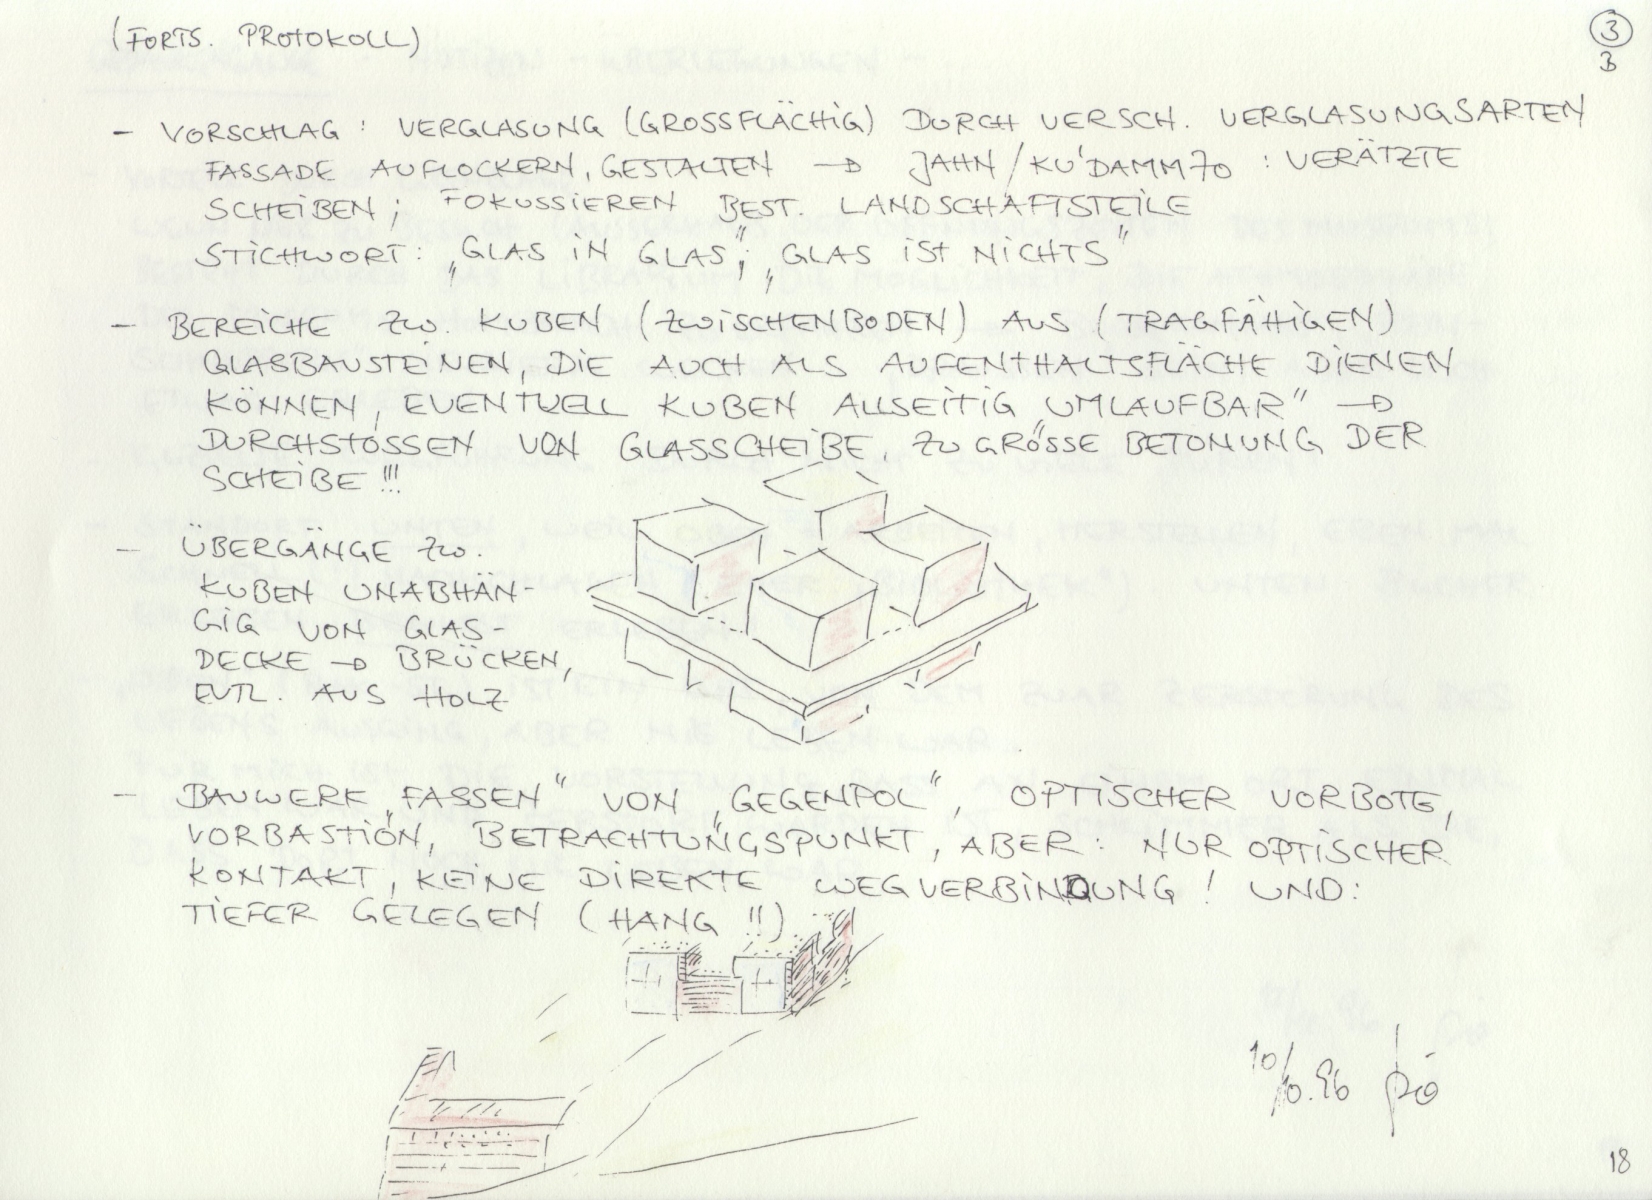 (FORTS. PROTOKOLL)
3
B
- VORSCHLAG: VERGLASUNG (GROSSFLÄCHIG) DURCH VERSCH. VERGLASUNGSARTEN
FASSADE AUFLOCKERN, GESTALTEN → JAHN/KU'DAMM 70: VERÄTZTE
SCHEIBEN; FOKUSSIEREN BEST. LANDSCHAFTSTEILE
STICHWORT: „GLAS IN GLAS"; „GLAS IST NICHTS"
- BEREICHE ZW. KUBEN (ZWISCHENBODEN) AUS (TRAGFÄHIGEN)
GLASBAUSTEINEN, DIE AUCH ALS AUFENTHALTSFLÄCHE DIENEN
KÖNNEN, EVENTUELL KUBEN ALLSEITIG „UMLAUFBAR" →
DURCHSTOSSEN VON GLASSCHEIBE, ZU GROSSE BETONUNG DER
SCHEIBE!!!
- ÜBERGÄNGE ZW.
KUBEN UNABHÄN-
GIG VON GLAS-
DECKE → BRÜCKEN,
EVTL. AUS HOLZ
- BAUWERK „FASSEN" VON „GEGENPOL", OPTISCHER VORBOTE,
VORBASTION, BETRACHTUNGSPUNKT, ABER: NUR OPTISCHER
KONTAKT, KEINE DIREKTE WEGVERBINDUNG! UND:
TIEFER GELEGEN (HANG!!)
10/10.96
18